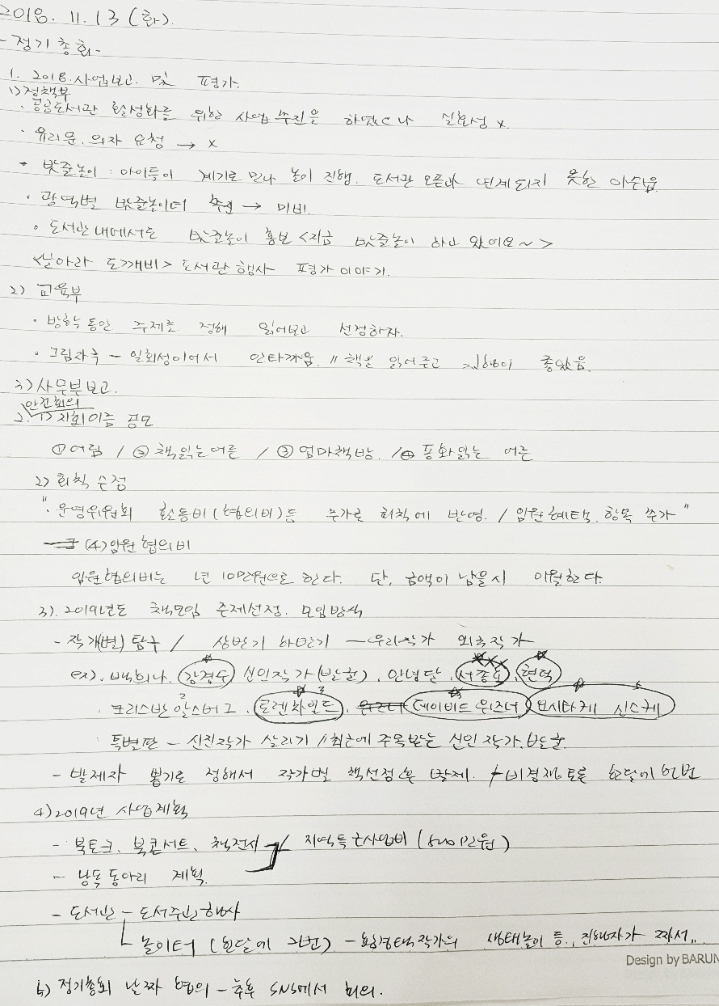 2018. 11. 13 (화).
- 정기총회 -
1. 2018. 사업보고 및 평가.
1) 정책부
· 공공도서관 활성화를 위한 사업 추진을 하였으나 실효성 x.
· 유리문, 의자 요청 → x
· 밧줄놀이 : 아이들이 계기로 만나 놀이 진행. 도서관 오픈과 연계되지 못한 아쉬움.
· 권역별 밧줄놀이터 추진 → 미비.
· 도서관내에서도 밧줄놀이 홍보 <지금 밧줄놀이 하고 있어요~>
<날아라 도깨비> 도서관행사 평가 이야기.
2) 교육부
· 방학동안 주제를 정해 읽어보고 선정하자.
· 그림자극 - 일회성이어서 안타까움. // 책을 읽어주고 좋았음.
3) 사무부보고.
안건회의
2. 1) 지회이름 공모
① 어림 / ② 책읽는어른 / ③ 엄마책방. / ④ 동화읽는 어른
2) 회칙 수정
" 운영위원회 활동비(협의비)등 추가로 회칙에 반영. / 임원혜택 항목 추가 "
(4) 임원협의비
임원협의비는 년 10만원으로 한다. 단, 금액이 남을시 이월한다.
3). 2019년도 책모임 주제선정. 모임방식
- 작가별 탐구 / 상반기 하반기 - 우리작가 외국작가
ex). 백희나. 신인작가(반한). 안녕달. 서종오 현덕
크리스반 알스버그. 로렌차일드. 데이비드 위즈너 요시타케 신스케
특별판 - 신진작가 살리기 // 최근에 주목받는 신인작가
- 발제자 뽑기로 정해서 작가별 책선정 발제. 비경쟁토론 한달에 한번
4) 2019년 사업계획
- 북토크. 북콘서트. 책전시 / 지역특근사업비 (800만원)
- 낭독동아리 계획.
- 도서관 - 도서주간행사
놀이터 (한달에 한번) - 작가의 생태놀이 등. 진행자가 와서..
5) 정기총회 날짜 협의 - 추후 SNS에서 회의.
Design by BARUN